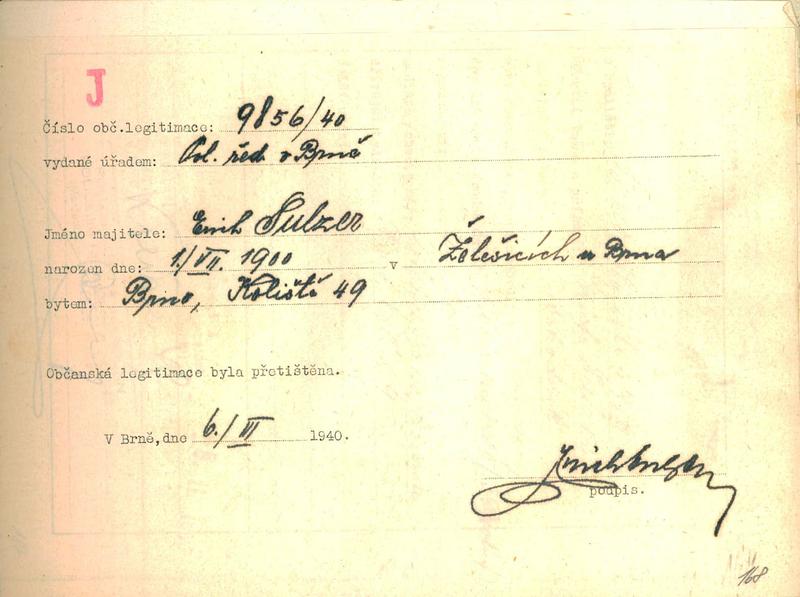 J
Číslo obč.legitimace: 9856/40
vydané úřadem: Pol. řed. v Brně
Jméno majitele: Erich Sulzer
narozen dne: 1./VII. 1900 v Želešicích u Brna
bytem: Brno, Koliště 49
Občanská legitimace byla přetištěna.
V Brně,dne 6./III 1940.
Erich Sulzer
podpis.
168